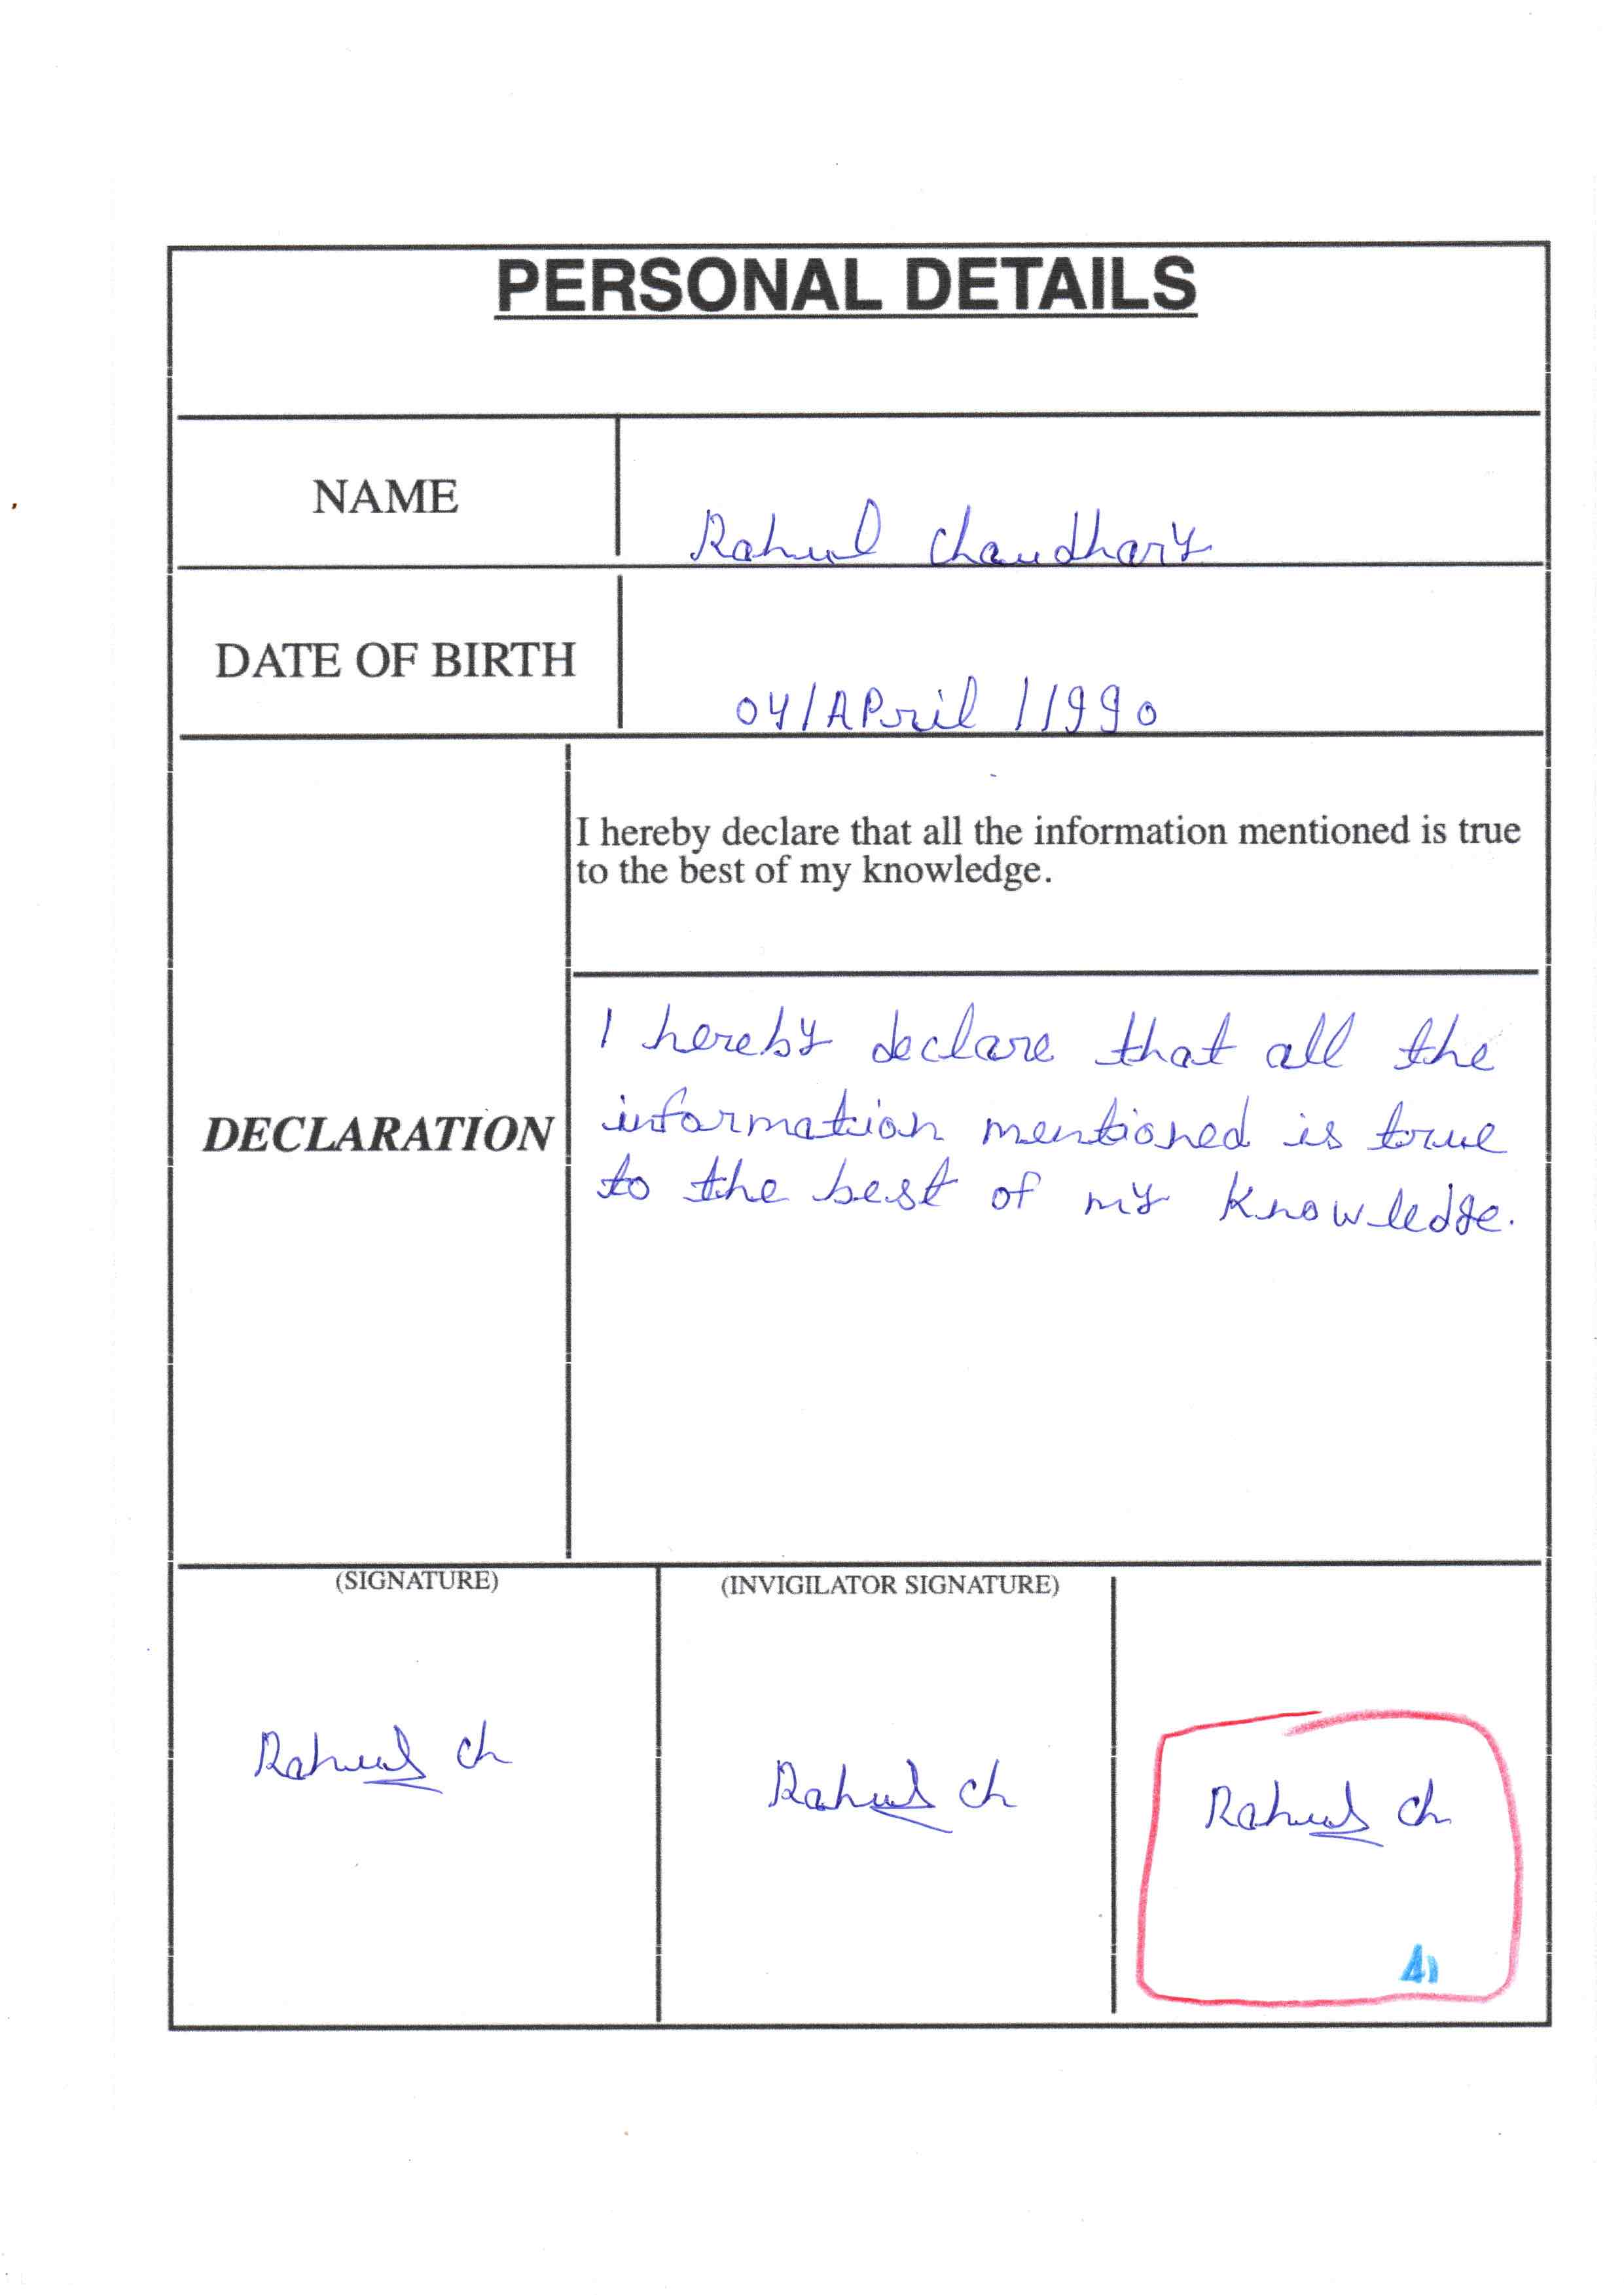 PERSONAL DETAILS
NAME
Rahul Chaudhary
DATE OF BIRTH
04/APril/1990
I hereby declare that all the information mentioned is true
to the best of my knowledge.
DECLARATION
I hereby declare that all the
information mentioned is true
to the best of my knowledge.
(SIGNATURE)
(INVIGILATOR SIGNATURE)
Rahul Ch
Rahul Ch
Rahul Ch